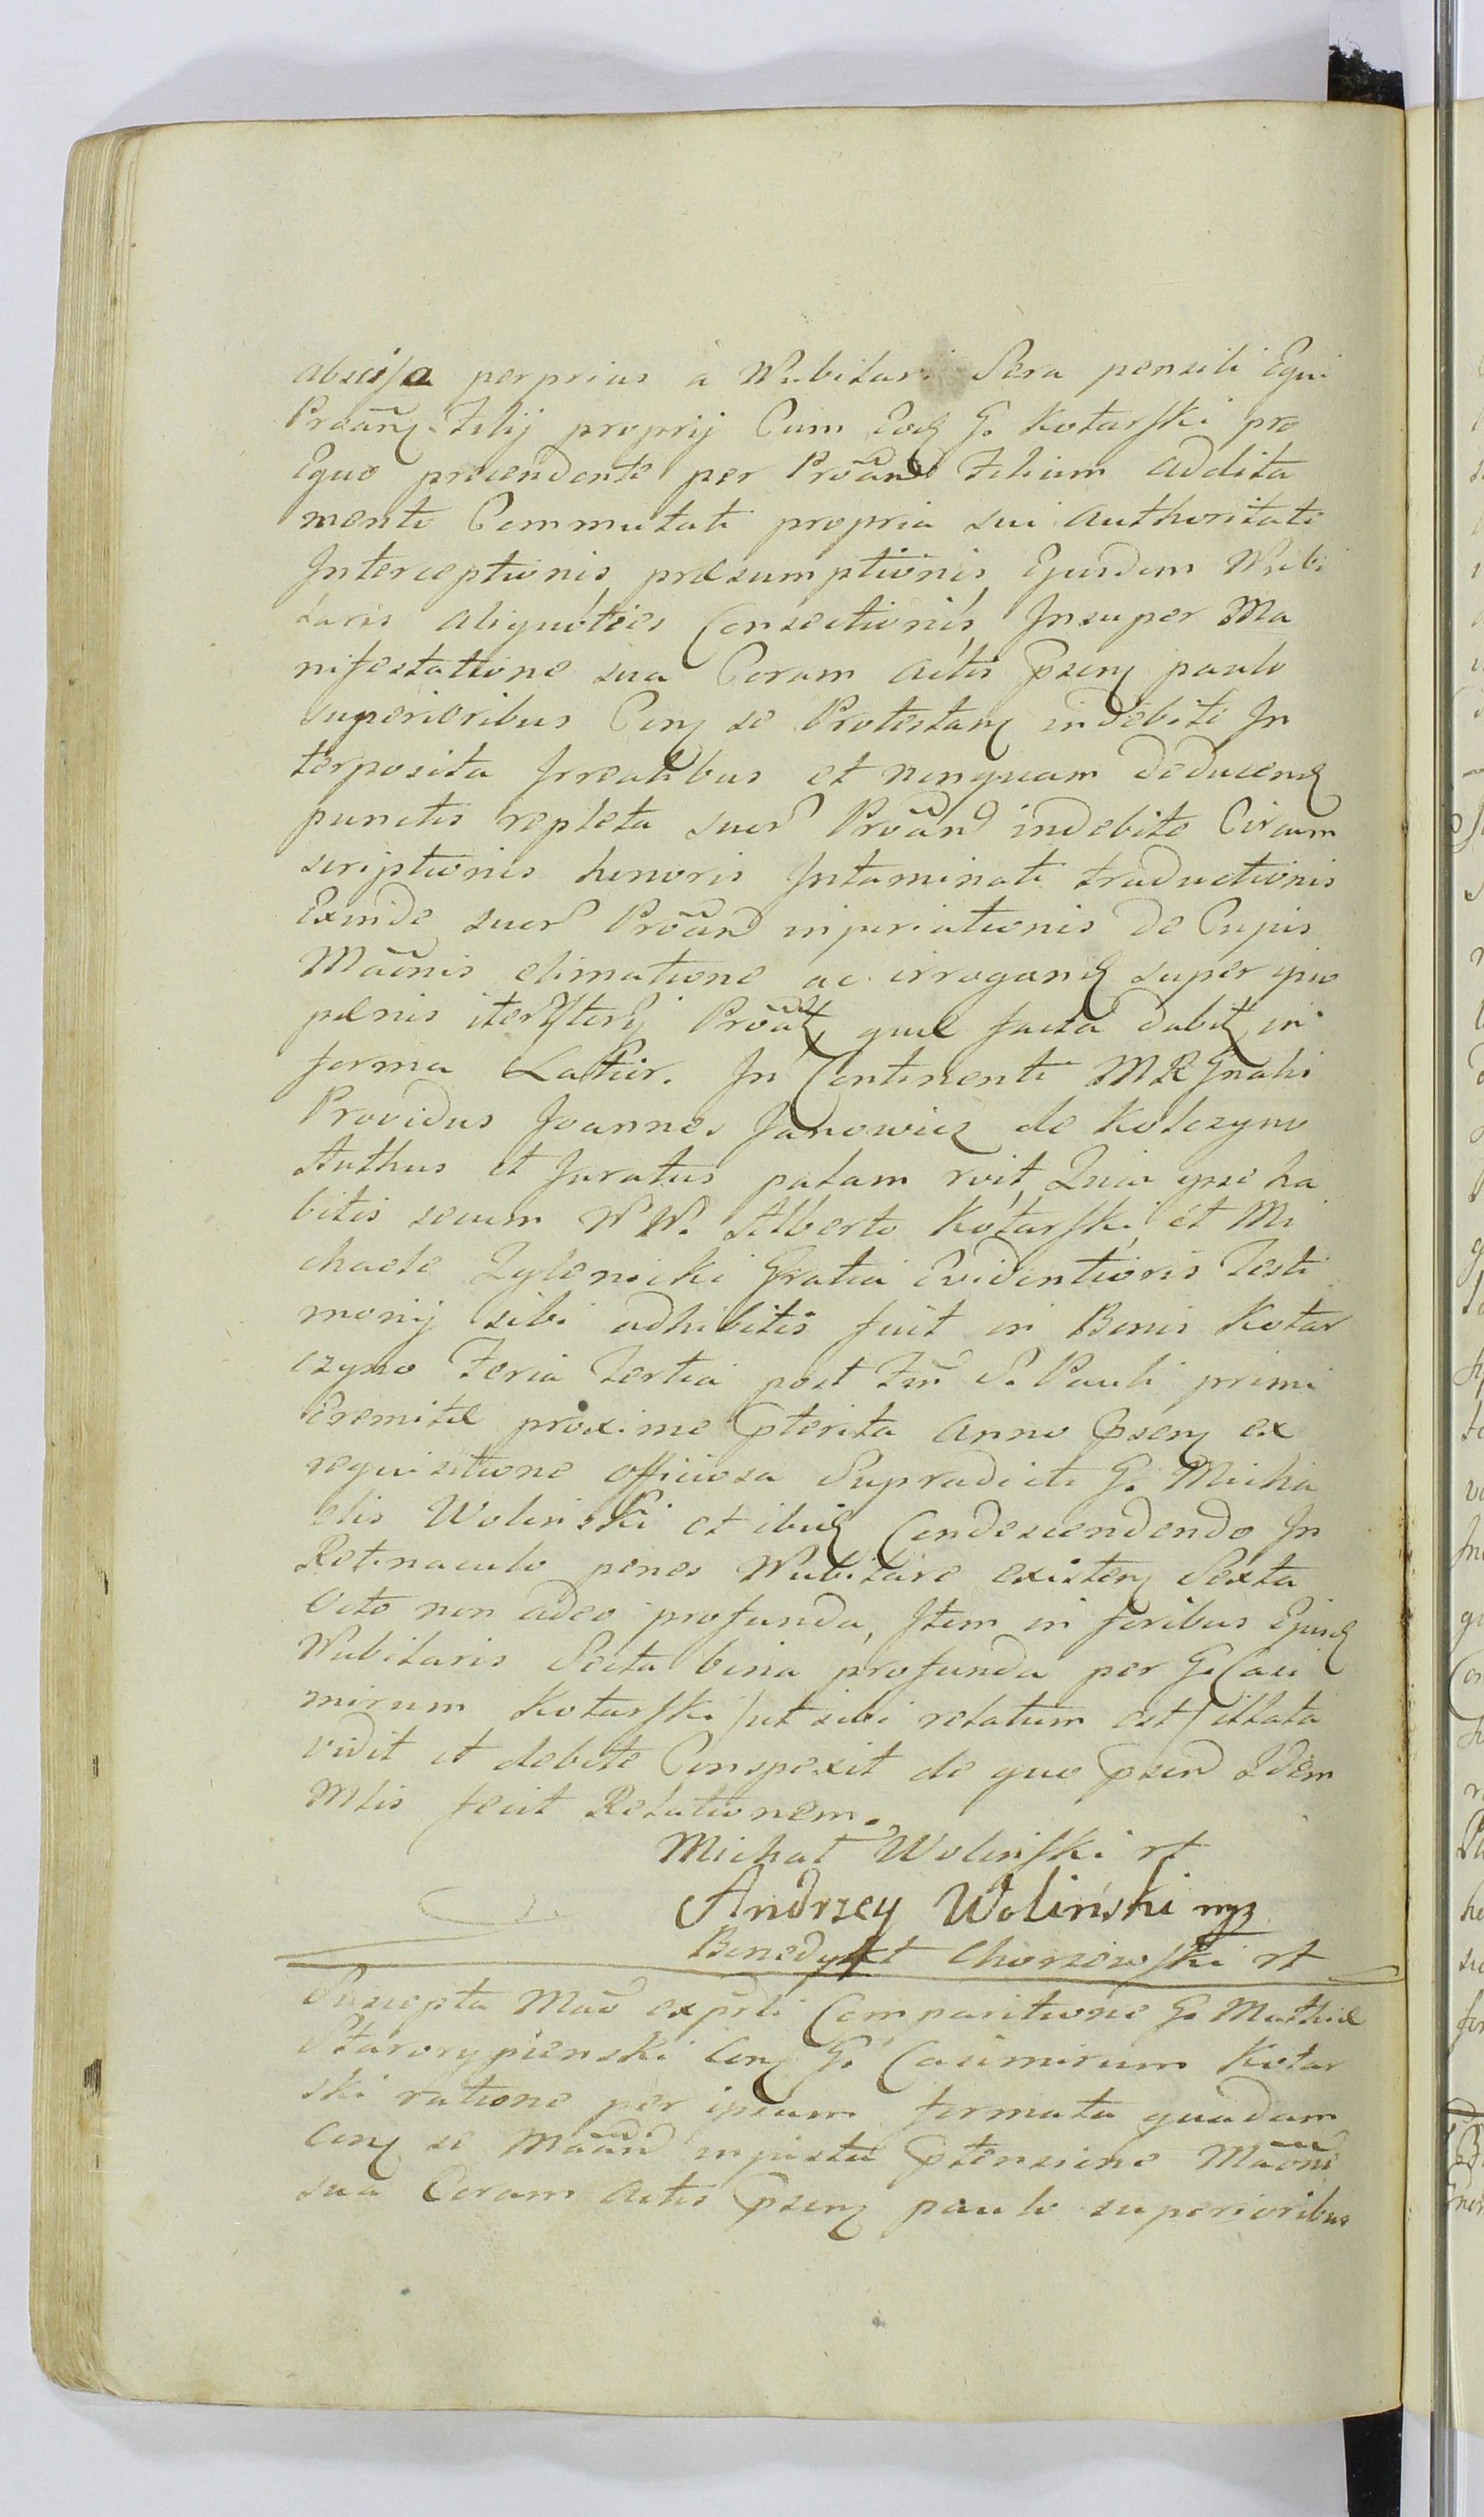 abscissa perprius a Wubitari Sera pensili Equi
Proãnz Filij proprij Cum Eodz G. Kotarski pro
Equo praecendente per Proãnd Filium addita
mento Commutati propria sui authoritate
Interceptionis, praesumptionis, Ejusdem Wubi
taris aliquoties Consectionis, Insuper Ma
nifestatione sua Coram actis Psenz paulo
superioribus Conz se Protestanz indebite In
terposita Irrealibus et nunquam deducendz
punctis repleta suor Proãnd indebite Circum
scriptionis honoris Intaminati traductionis
Exinde suor Proãnd injuriationis de Cujus
Mãonis elimatione ac irrogandz super quo
paenis iter Proãtz, quae facta dabitz in
forma Latior. In Continenti MR Gnalis
Providus Joannes Janowicz de Kotczyno
Authus et Juratus palam rvit, Quia ipse ha
bitis secum NN. Alberto Kotarski, et Mi
chaele Zylenicki Gratia Evidentioris Testi
monij sibi adhibitis fuit in Bonis Kotar
czyno Feria Tertia post Fm S. Pauli primi
Eremitae proxime pterita anno Psenz ex
requisitione officiosa Supradicti G. Micha
elis Wolinski et ibidz Condescendendo In
Retinaculo penes Wubitare existenz Sexta
Octo non adeo profunda, Item in foribus Ejusdz
Wubitaris Secta bina profunda per G. Casi
mirum Kotarski /ut sibi relatum est/ illata
vidit et debite Conspexit de quo psend Idem
Mlis fecit Relationem.
Michał Wolinski rt
Andrzey Woliński mz
Benedykt Chorzewski rt
Suscepta Mão exprsti Comparitione G. Mathiae
Starorypienski Conz G. Casimirum Kotar
ski ratione per ipsum formata quadam
Conz se Mãand injusta ptensione Mãoni
sua Coram actis Psenz paulo superioribus